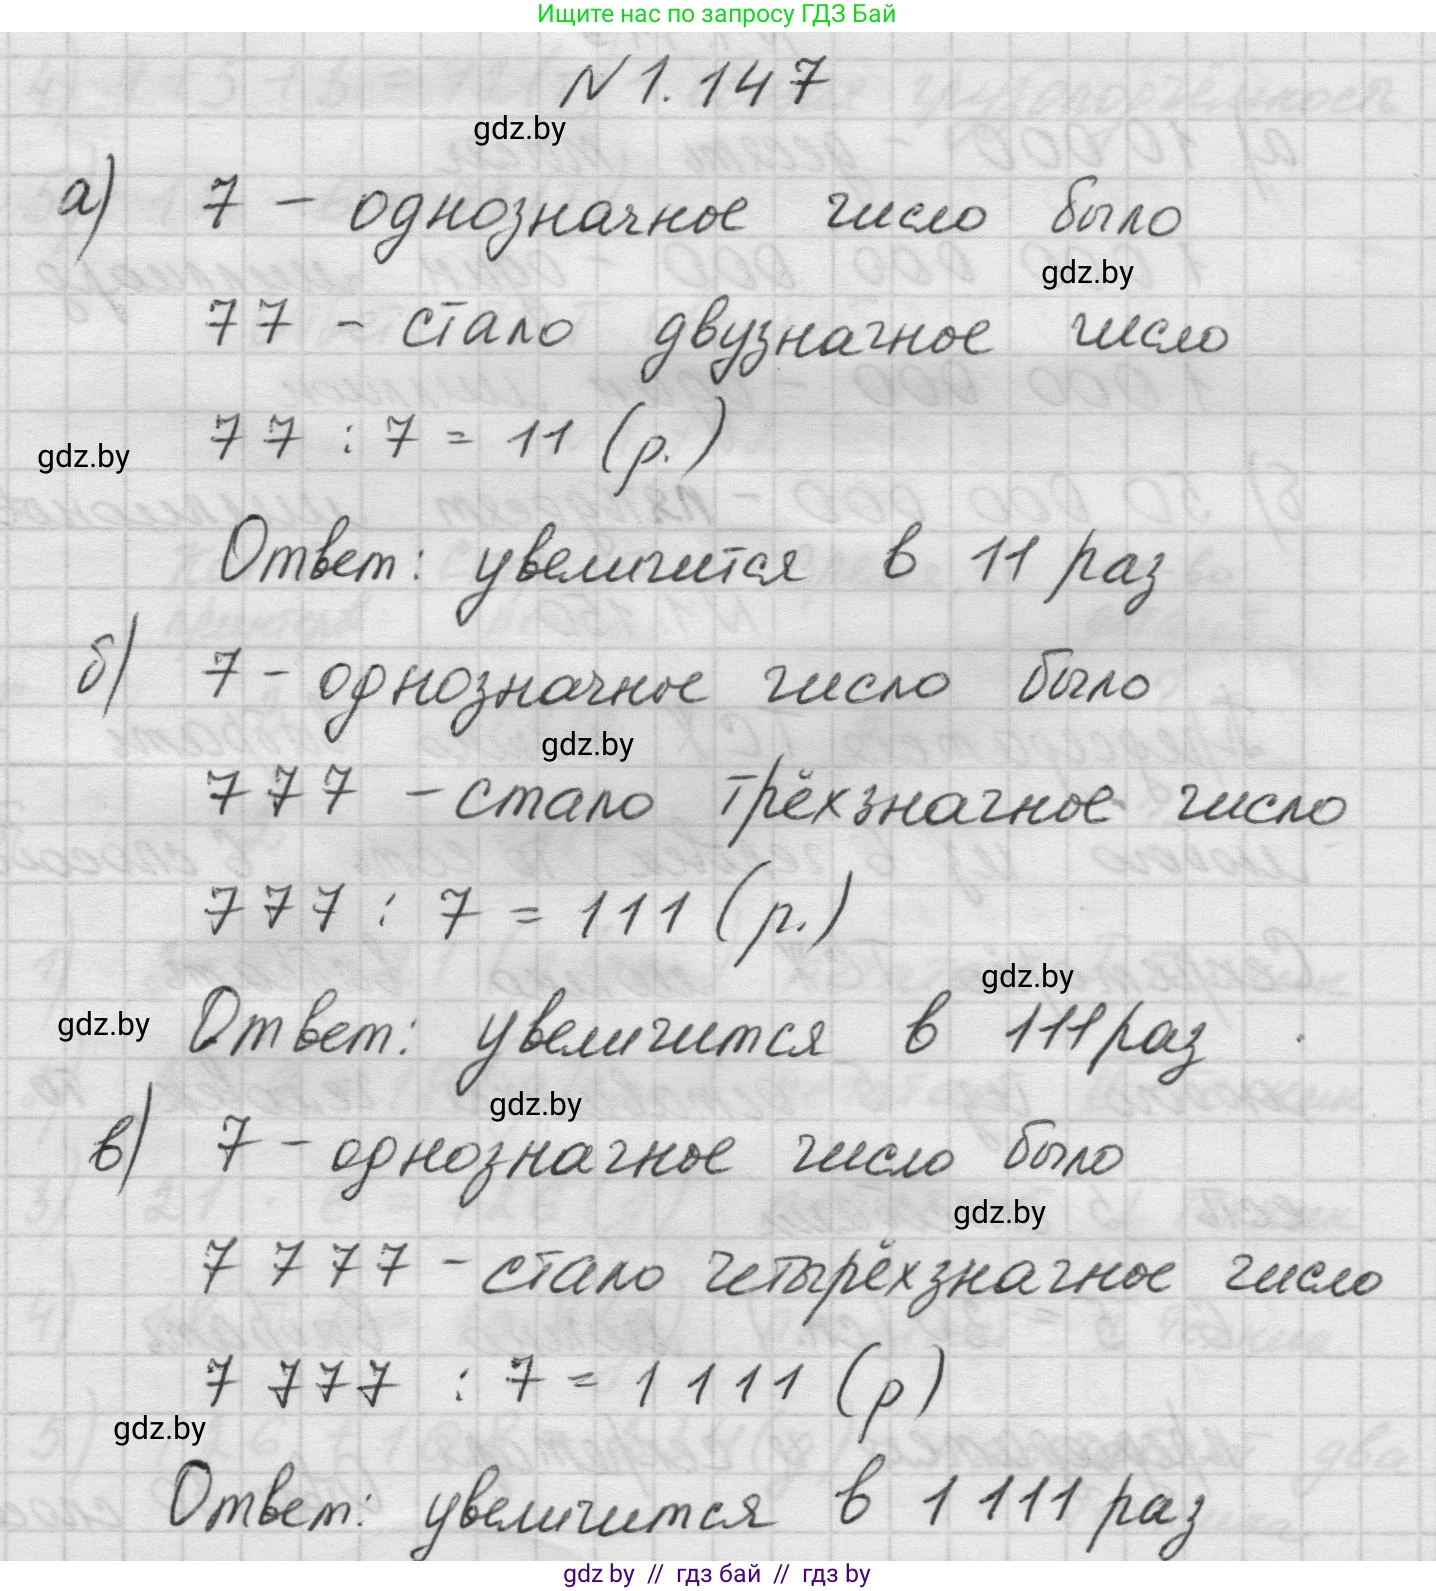 Ищите нас по запросу ГДЗ Бай
N 1.147
gdz.by
а) 7 - однозначное число было
gdz.by
77 - стало двузначное число
77 : 7 = 11 (р.)
gdz.by
Ответ: увеличится в 11 раз
б) 7 - однозначное число было
gdz.by
777 - стало трёхзначное число
777 : 7 = 111 (р.)
gdz.by
gdz.by Ответ: увеличится в 111 раз
gdz.by
в) 7 - однозначное число было
gdz.by
7 777 - стало четырёхзначное число
7 777 : 7 = 1 111 (р)
gdz.by
Ответ: увеличится в 1 111 раз
gdz by // гдз бай // гдз by